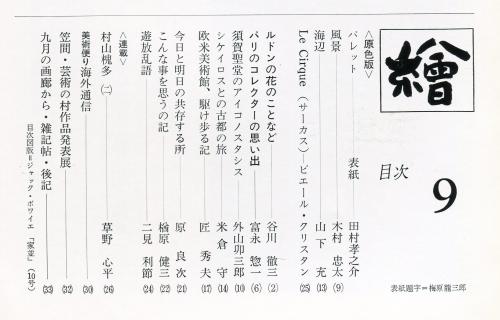 繪
目次
9
表紙題字=梅原龍三郎
〈原色版〉
パレット 表紙 田村孝之介
風景 木村忠太 (9)
海辺 山下充 (13)
Le Cirque (サーカス)―ピエール・クリスタン (25)
ルドンの花のことなど 谷川徹三 (2)
パリのコレクターの思い出 富永惣一 (6)
須賀聖堂のアイコノスタシス 外山卯三郎 (10)
シケイロスとの古都の旅 米倉守 (14)
欧米美術館、駆け歩る記 匠秀夫 (17)
今日と明日の共存する所 原良次 (21)
こんな事を思うの記 楢原健三 (22)
遊放乱語 二見利節 (24)
〈連載〉
村山槐多 (二) 草野心平 (26)
美術便り海外通信 (30)
笠間・芸術の村作品発表展 (32)
九月の画廊から・雑記帖・後記 (33)
目次図版=ジャック・ボワイエ 「家並」 (10号)